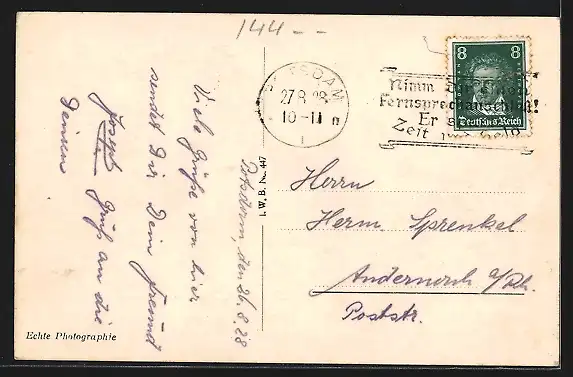 144--
POTSDAM
27.8.28
10-11 n
1
Nimm
Fernsprechanschluß!
Er
Zeit
8 8
Deutsches Reich
Potsdam, den 26.8.28
Viele Grüße von hier
sendet Dir Dein Freund
Joseph Gruß an die
Deinen
I. W. B. No. 447
Herrn
Herm. Sprenkel
Andernach a/Rh.
Poststr.
Echte Photographie